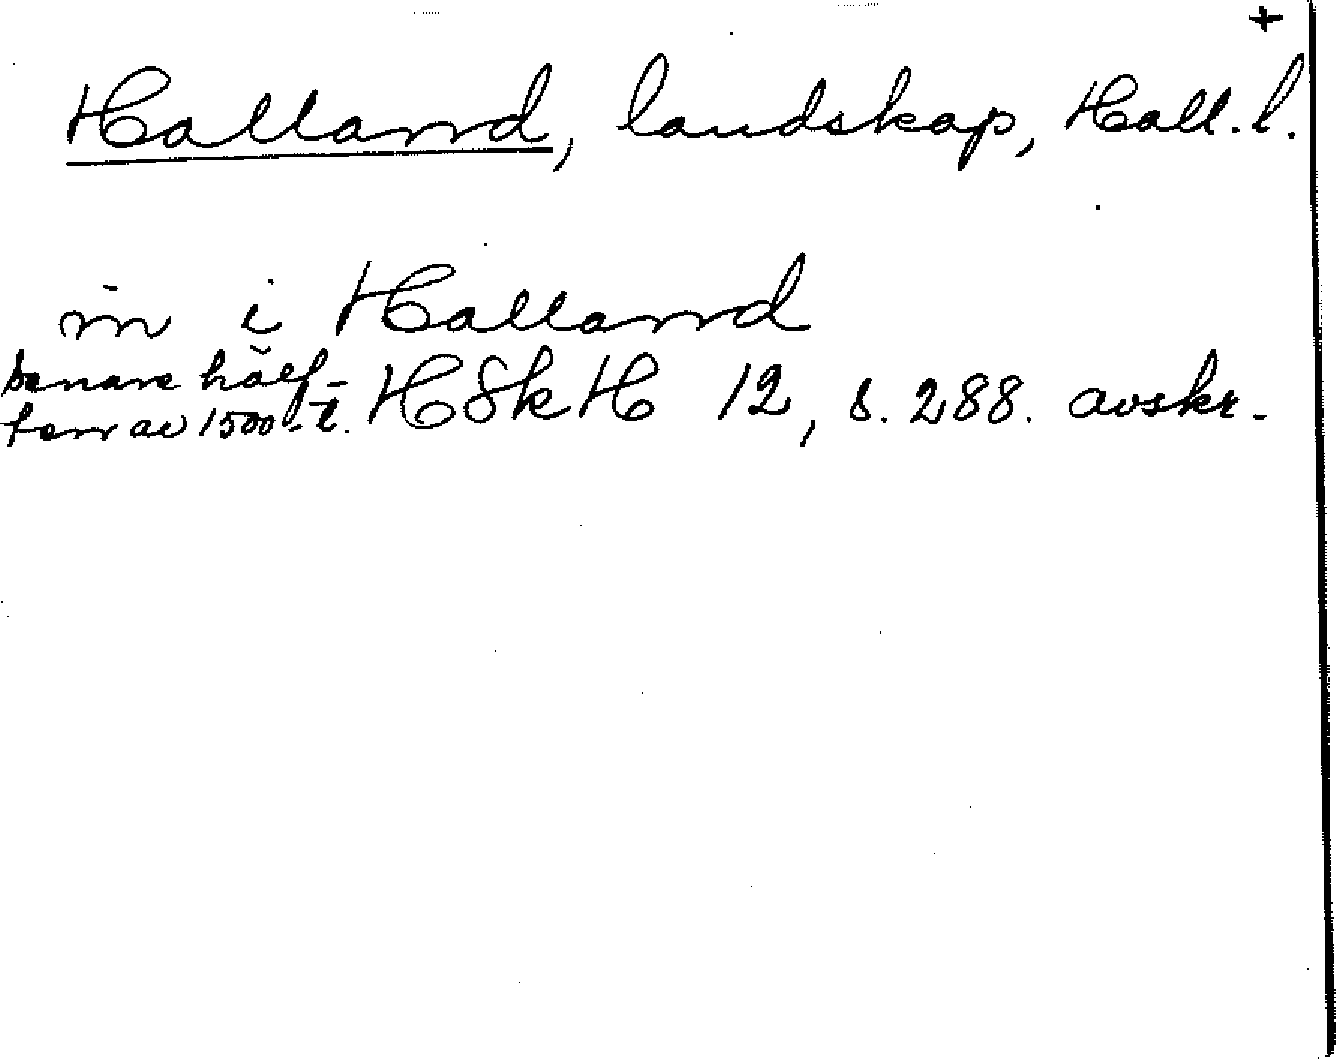 +
Halland, landskap, Hall. l.
in i Halland
senare hälf-
ten av 1500-t. HSkH 12, s. 288. avskr.